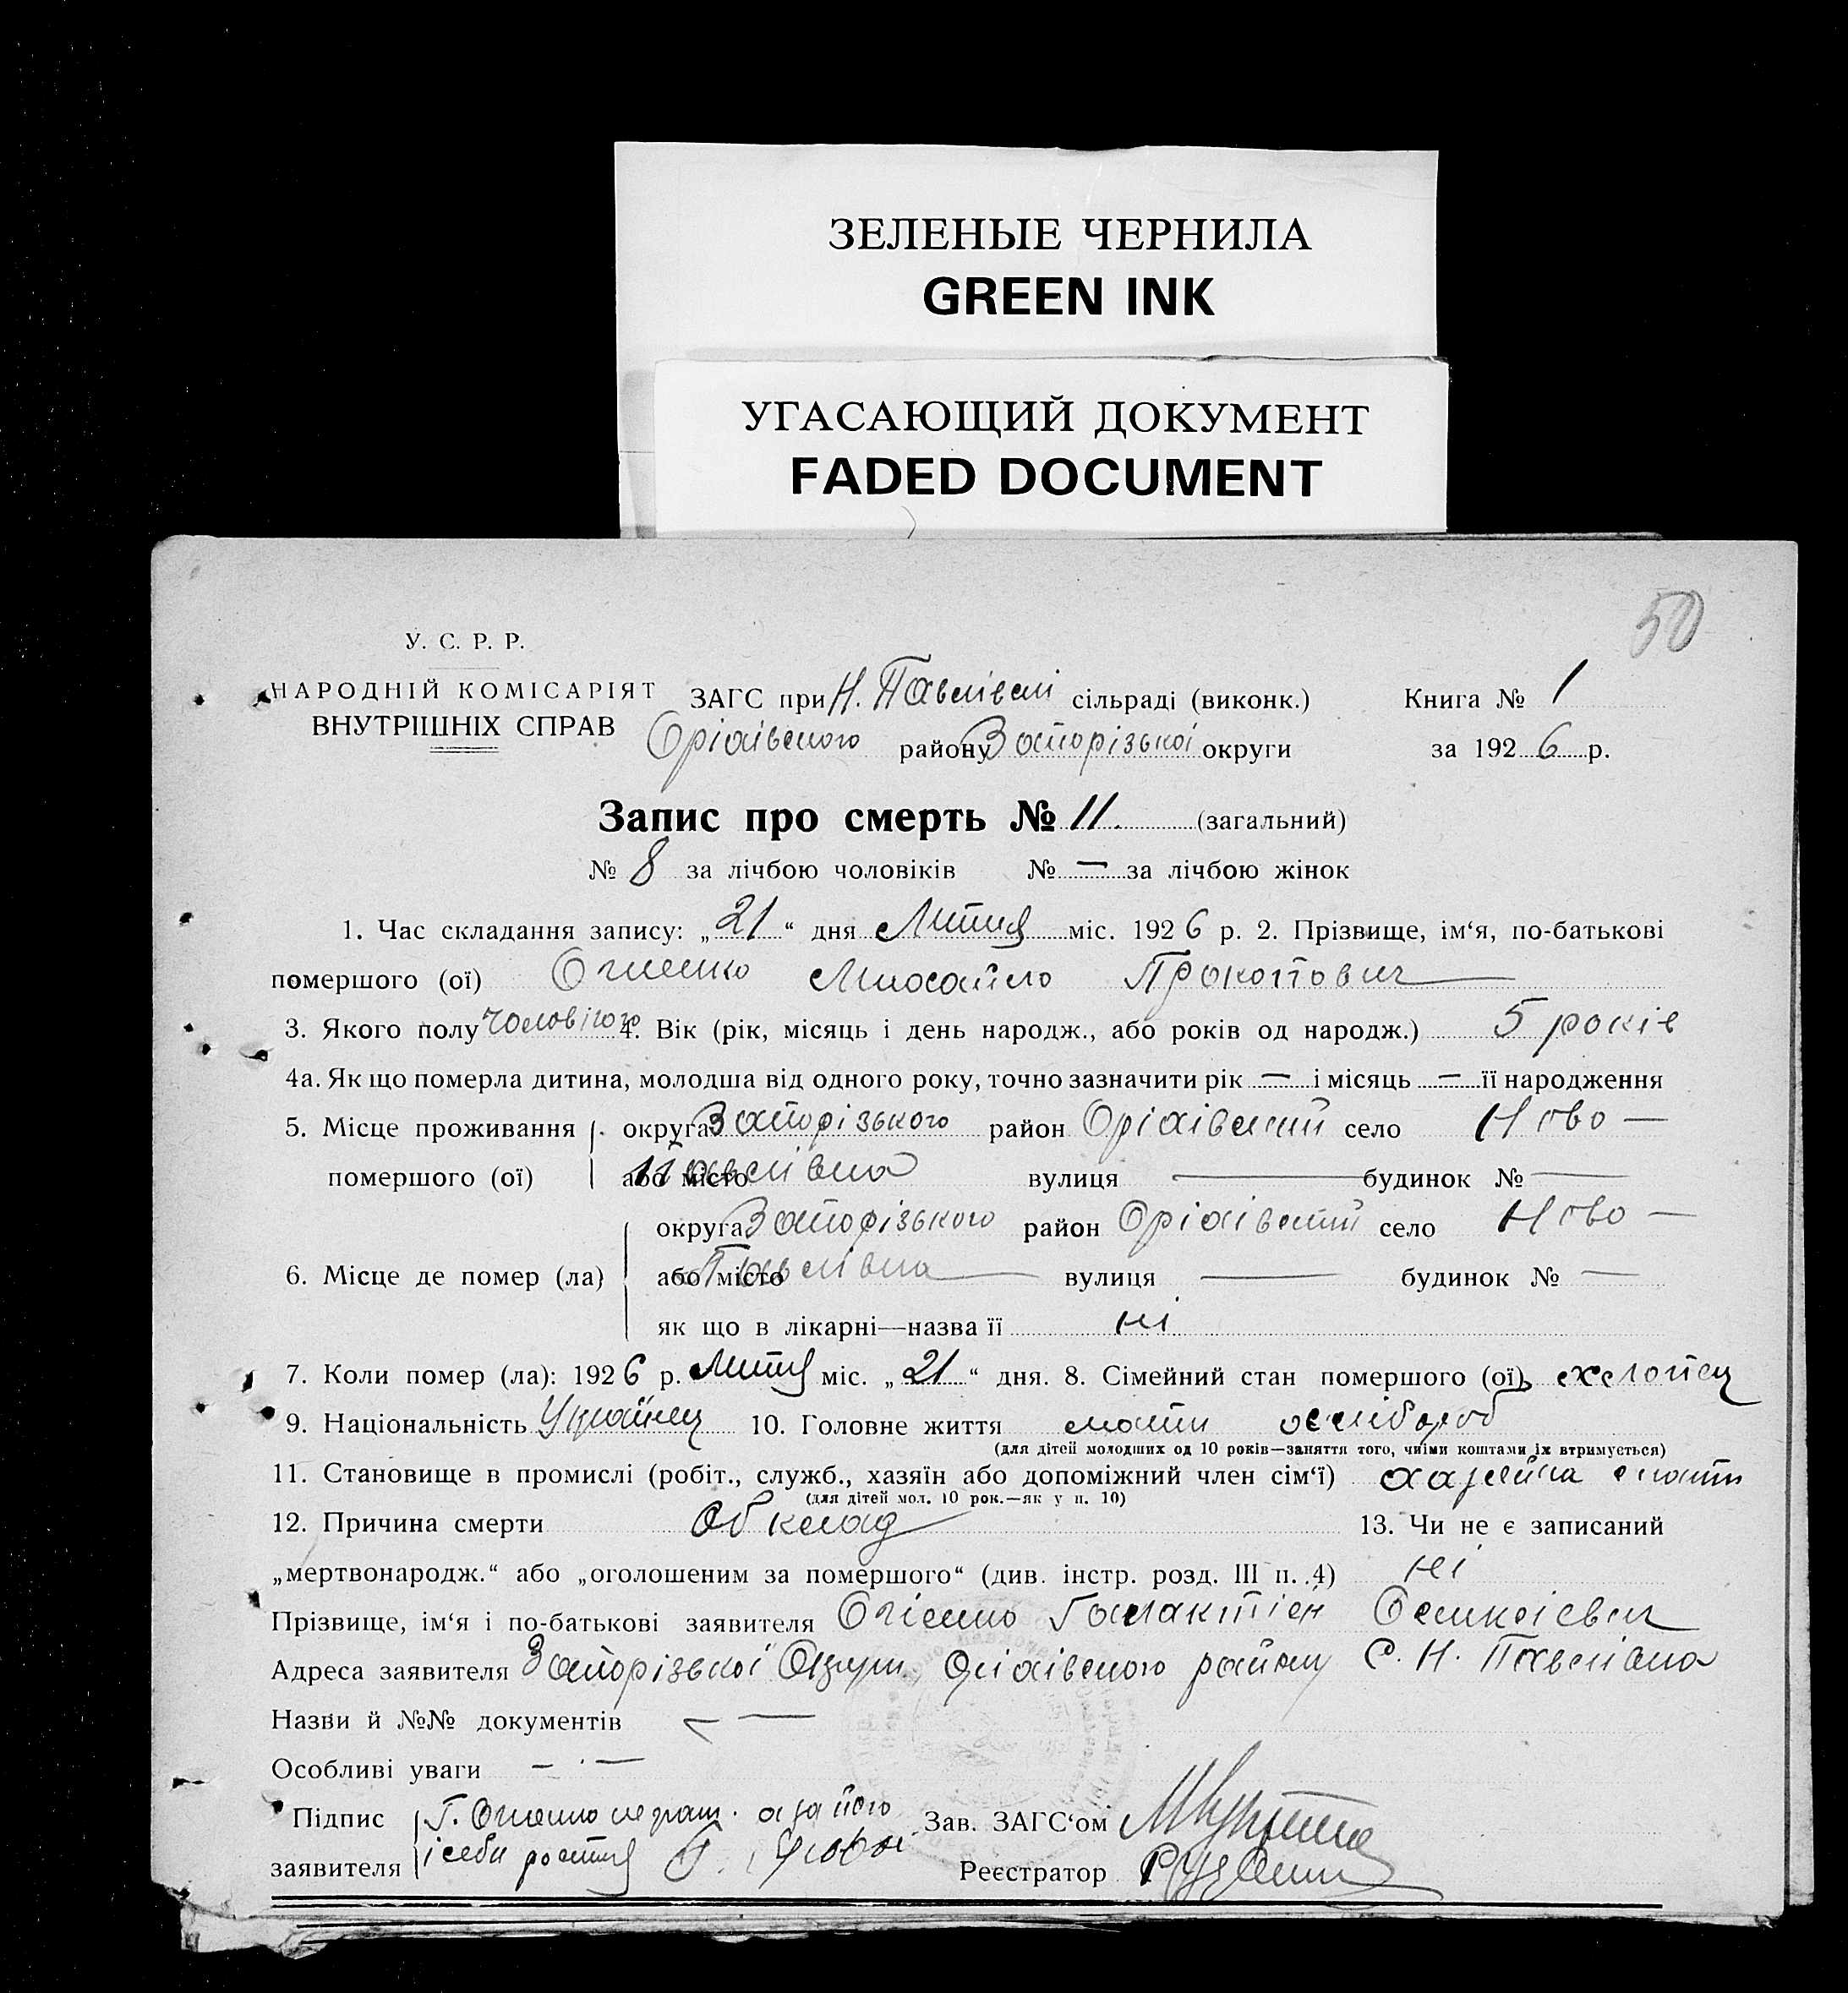 ЗЕЛЕНЫЕ ЧЕРНИЛА
GREEN INK
УГАСАЮЩИЙ ДОКУМЕНТ
FADED DOCUMENT
50
У. С. Р. Р.
НАРОДНІЙ КОМІСАРІЯТ
ВНУТРІШНІХ СПРАВ
ЗАГС при Н. Павлівск сільраді (виконк.) Книга № 1
Оріхівського району Запорізької округи за 1926 р.
Запис про смерть № 11. (загальний)
№ 8 за лічбою чоловіків № — за лічбою жінок
1. Час складання запису: „21“ дня Лютия міс. 1926 р. 2. Прізвище, ім‘я, по-батькові
помершого (ої) Огиенко Михайло Прокопович
3. Якого полу чоловічого 4. Вік (рік, місяць і день народж., або років од народж.) 5 років
4а. Як що померла дитина, молодша від одного року, точно зазначити рік — і місяць — її народження
5. Місце проживання округа Запорізького район Оріхівський село Ново —
помершого (ої) або місто Павлівка вулиця — будинок № —
округа Запорізького район Оріхівский село Ново —
6. Місце де помер (ла) або місто Павлівка — вулиця — будинок № —
як що в лікарні—назва її ні
7. Коли помер (ла): 1926 р. Лютия міс. „21“ дня. 8. Сімейний стан помершого (ої) хлопец
9. Національність Українец 10. Головне життя мати хлібороб
(для дітей молодших од 10 років—заняття того, чиїми коштами їх втримується)
11. Становище в промислі (робіт., служб., хазяїн або допоміжний член сім‘ї) хазяйка мати
(для дітей мол. 10 рок.—як у п. 10)
12. Причина смерти Обклад 13. Чи не є записаний
„мертвонародж.“ або „оголошеним за помершого“ (див. інстр. розд. III п. 4) ні
Прізвище, ім‘я і по-батькові заявителя Огіенко Галактіон
Адреса заявителя Запорізької Округи Оріхівського району С. Н. Павлівка
Назви й №№ документів —
Особливі уваги — —
Підпис Г. Огиенко неграм. а за його
заявителя і себи
Зав. ЗАГС‘ом
Реєстратор